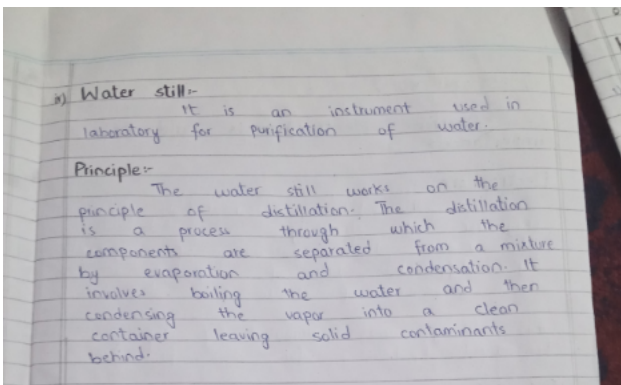 ix) Water still:-
It is an instrument used in
laboratory for purification of water.
Principle:-
The water still works on the
principle of distillation. The distillation
is a process through which the
components are separated from a mixture
by evaporation and condensation. It
involves boiling the water and then
condensing the vapor into a clean
container leaving solid contaminants
behind.